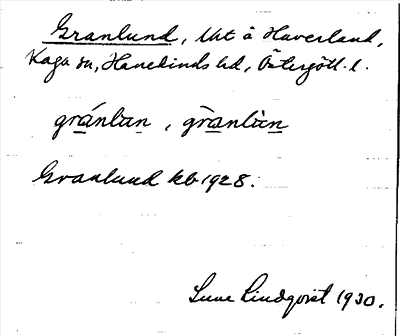 Granlund, Uht å Haverland,
Kaga sn, Hanekinds hd, Östergötl. l.
gránlan, grànlàn
Granlund kb 1928.
Sune Lindqvist 1930.